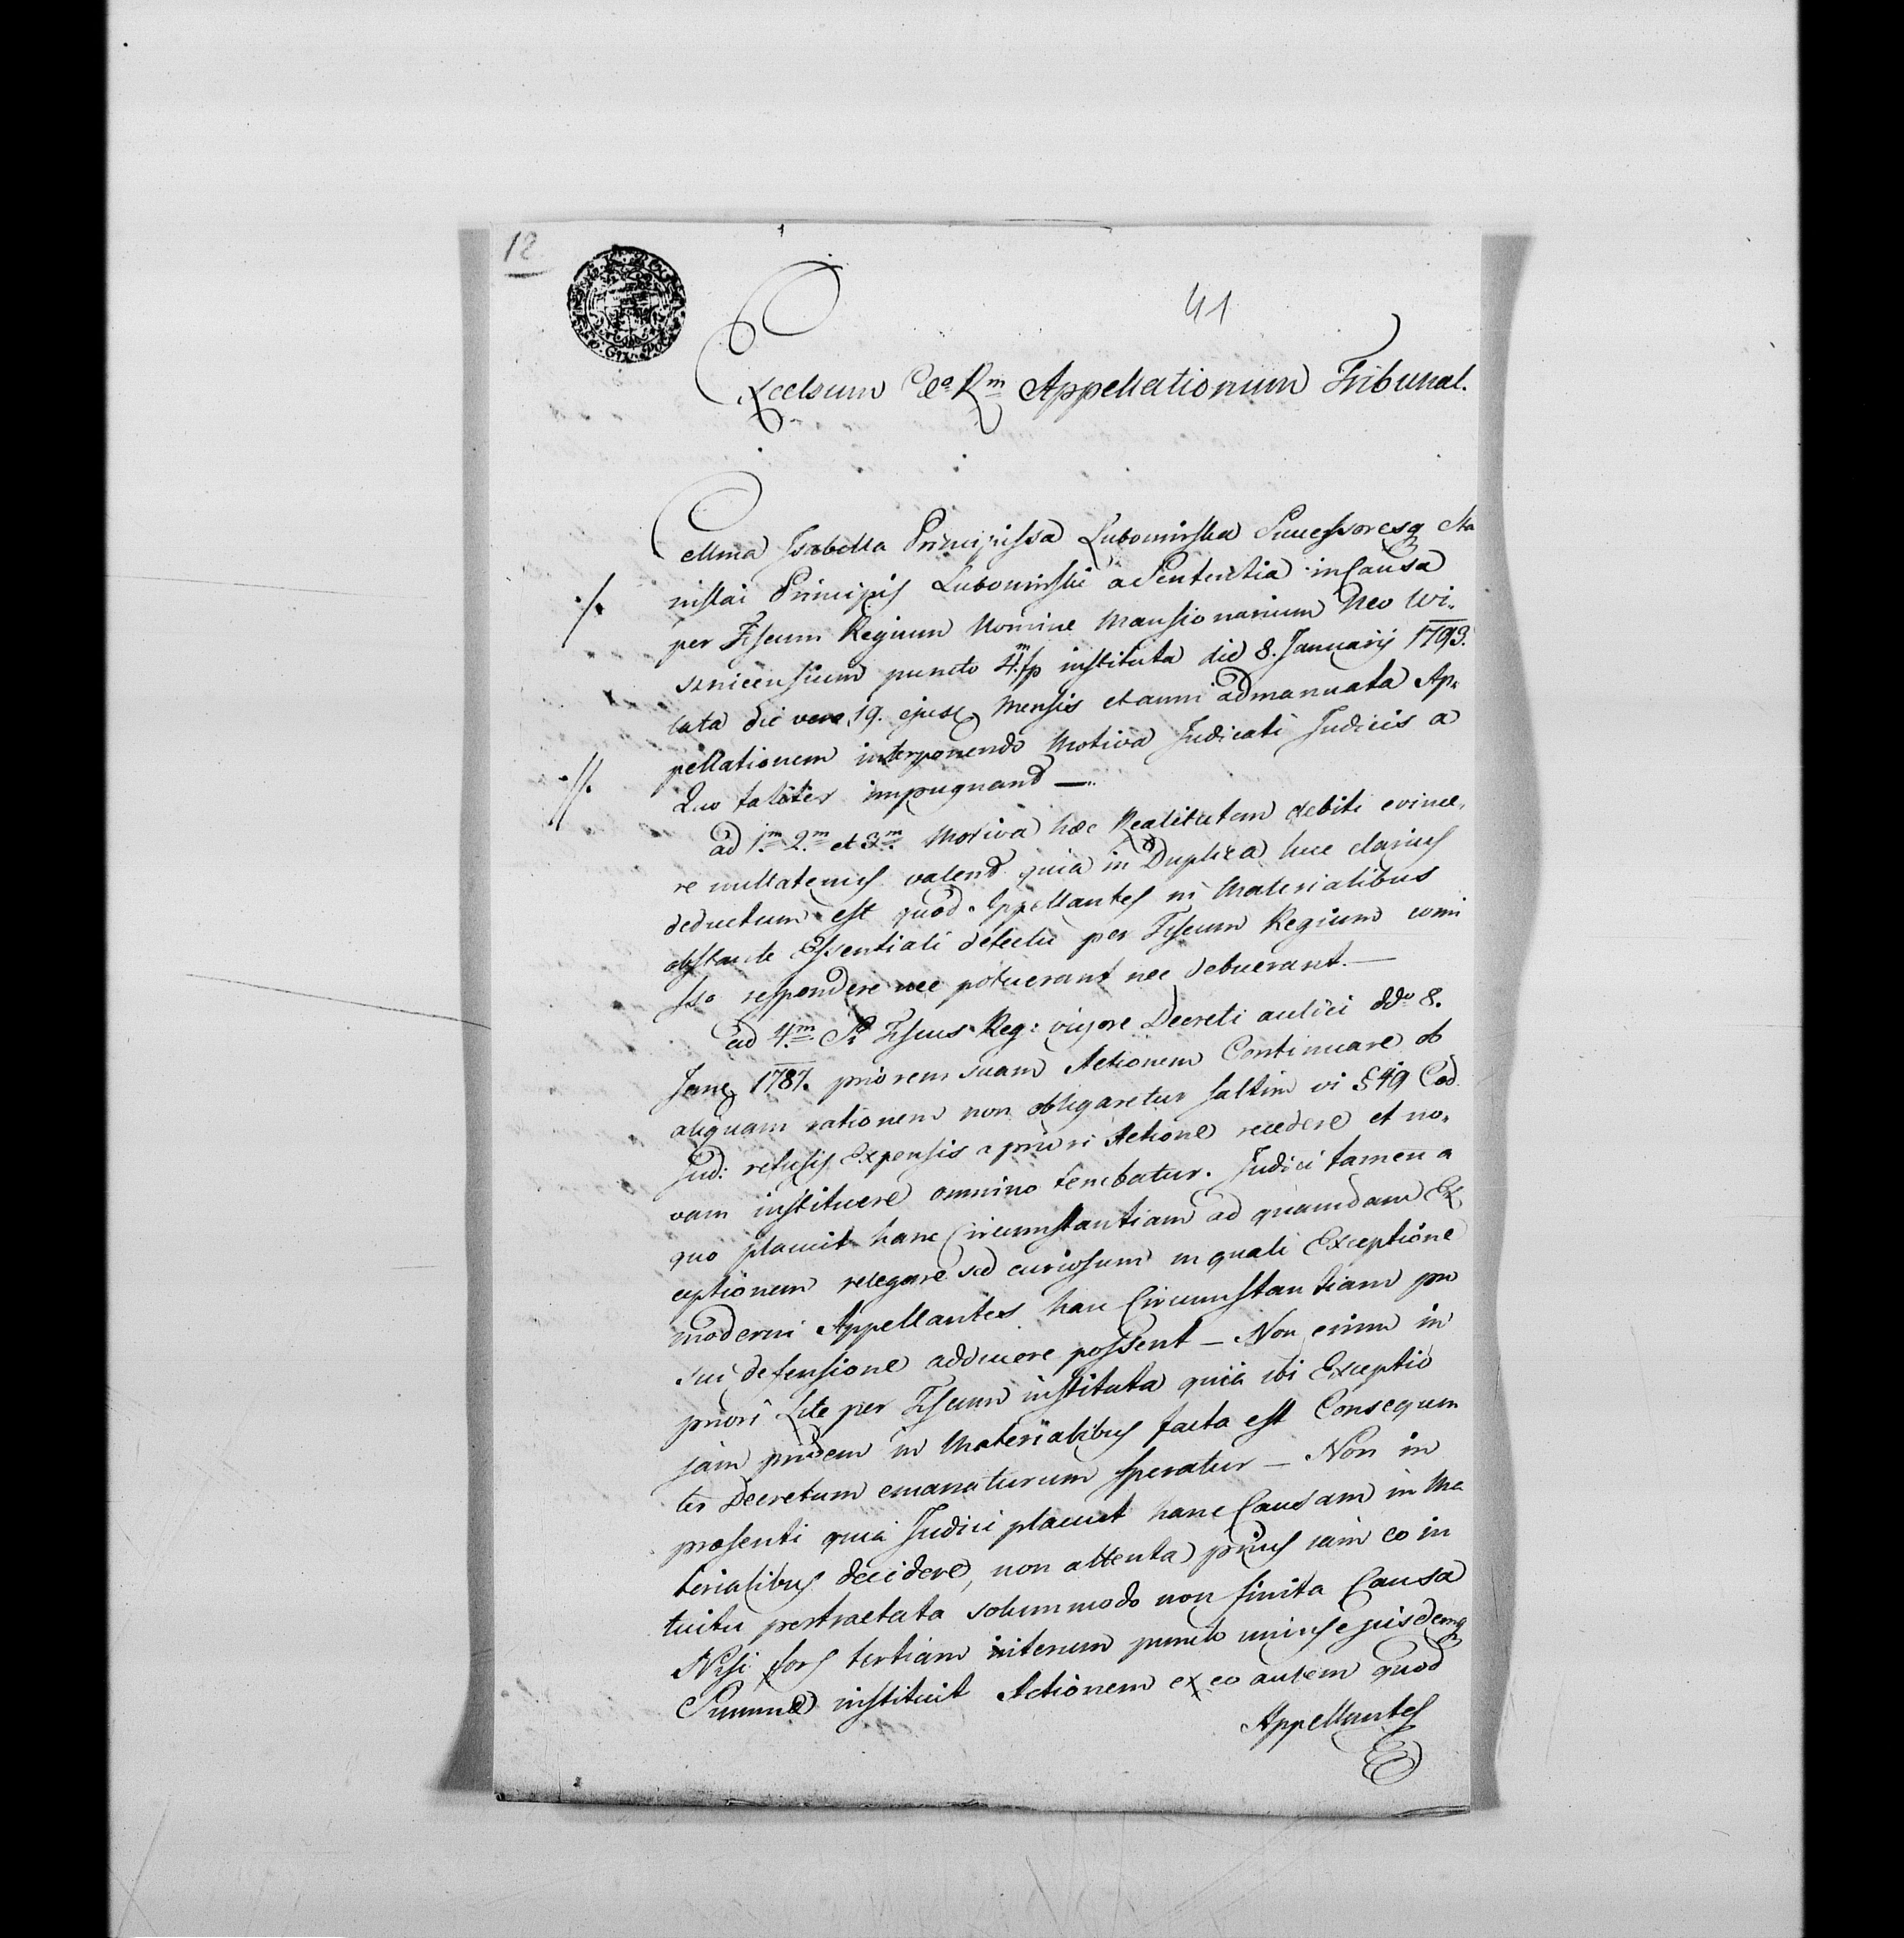 12
41
Excelsum Cæo Rm Appellationum Tribunal.
Cellma Isabella Principissa Lubomirska Successoresq Sta
nislai Principis Lubomirski a Sententia in Causa
per Fiscum Regium Nomine Mansionarium Neo Wi.
snicensium puncto 4.m fp instituta die 8. Januarij 1793.
lata die vero 19. ejusd Mensis et anni admanuata Ap.
pellationem interponendo Motiva Judicati Judicis a
Quo taliter impugnand —
ad 1m 2m et 3m. Motiva hæc Realitatem debiti evince.
re nullatenus valent quia in Duplica luce clarius
deductum est quod Appellantes in Materialibus
obstante Essentiali defectu per Fiscum Regium comi
sso respondere nec potuerant nec debuerant. —
ad 4m Si Fiscus Reg: vigore Decreti aulici ddo 8.
Jan 1787. priorem suam Actionem Continuare ob
aliquam rationem non obligaretur saltim vi § 49 Cod.
Jud: refusis Expensis a priori Actione recedere et no.
vam instituere omnino tenebatur. Judici tamen a
quo placuit hanc Circumstantiam ad quamdam Ex
ceptionem relegare sed curiosum in quali Exceptione
moderni Appellantes hanc Circumstantiam pro
sui defensione adducere possent — Non enim in
priori Lite per Fiscum instituta quia ibi Exceptio
jam pridem in Materialibus facta est Consequen
ter Decretum emanaturum speratur — Non in
præsenti quia Judici placuit hanc Causam in Ma
terialibus decidere, non attenta prius jam eo in
tuitu pertractata solummodo non finita Causa
Nisi fors tertiam iterum puncto unius ejusdemq
Summæ instituit Actionem ex eo autem quod
Appellantes